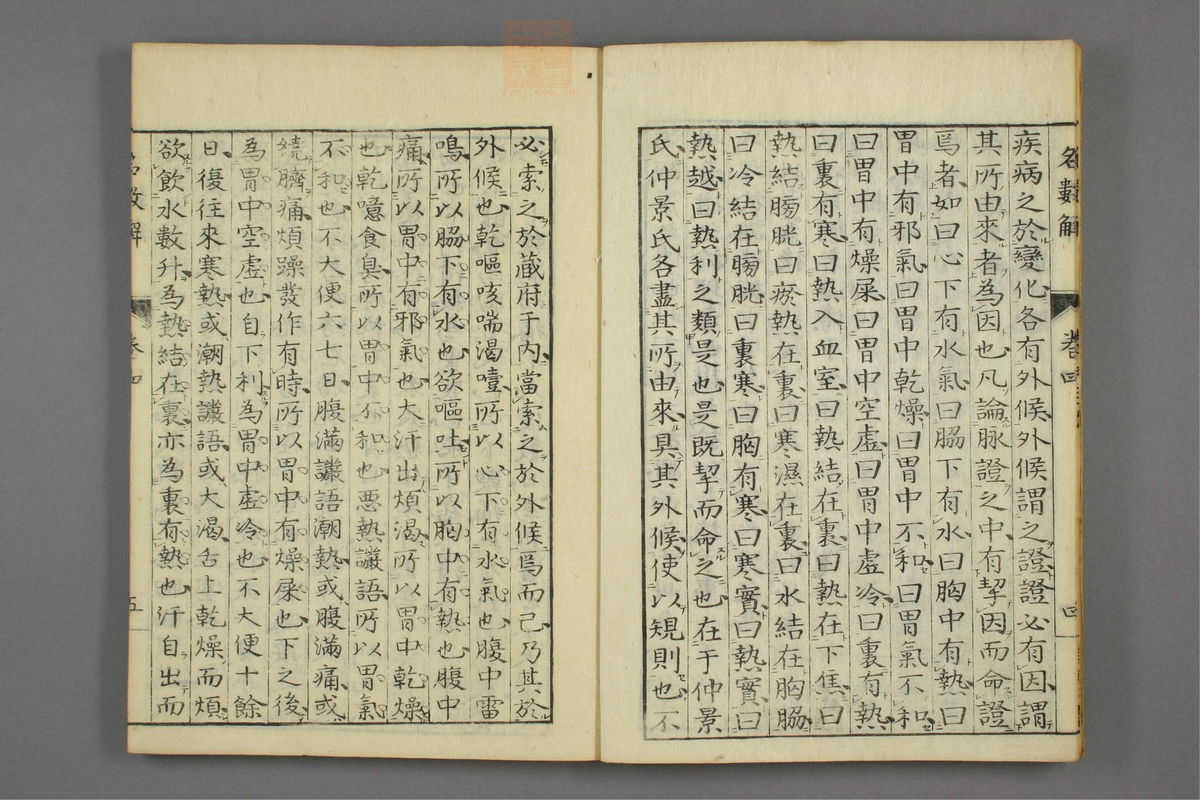 名數解 卷四 四
疾病之於變化各有外候外候謂之證證必有因謂
其所由來者為因也凡論脉證之中有挈因而命證
焉者如曰心下有水氣曰脇下有水曰胸中有熱曰
胃中有邪氣曰胃中乾燥曰胃中不和曰胃氣不和
曰胃中有燥屎曰胃中空虛曰胃中虛冷曰裏有熱
曰裏有寒曰熱入血室曰熱結在裏曰熱在下焦曰
熱結膀胱曰瘀熱在裏曰寒濕在裏曰水結在胸脇
曰冷結在膀胱曰裏寒曰胸有寒曰寒實曰熱實曰
熱越曰熱利之類是也是既挈而命之也在于仲景
氏仲景氏各盡其所由來具其外候使以規則也不
必索之於蔵府于内當索之於外候焉而已乃其於
外候也乾嘔咳喘渴噎所以心下有水氣也腹中雷
鳴所以脇下有水也欲嘔吐所以胸中有熱也腹中
痛所以胃中有邪氣也大汗出煩渴所以胃中乾燥
也乾噫食臭所以胃中不和也惡熱讝語所以胃氣
不和也不大便六七日腹滿讝語潮熱或腹滿痛或
繞臍痛煩躁發作有時所以胃中有燥屎也下之後
為胃中空虛也自下利為胃中虛冷也不大便十餘
日復往來寒熱或潮熱讝語或大渴舌上乾燥而煩
欲飲水數升為熱結在裏亦為裏有熱也汗自出而
名數解 卷四 五